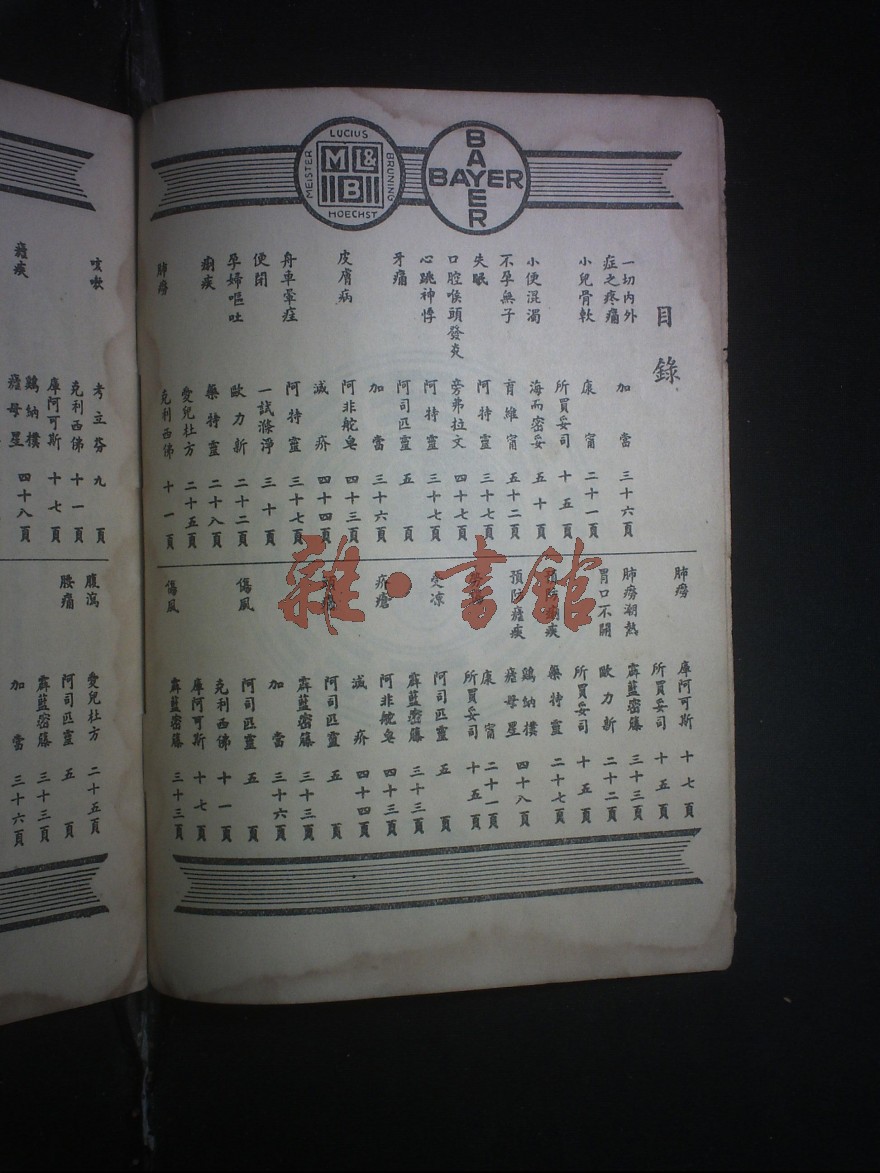 LUCIUS
MEISTER
BRUNING
HOECHST
M L&
B
BAYER
BAYER
目錄
一切內外
症之疼痛 加當 三十六頁
小兒骨軟 康甯 二十一頁
所買妥司 十五頁
小便混濁 海而密妥 五十頁
不孕無子 育維甯 五十二頁
失眠 阿特靈 三十七頁
口腔喉頭發炎 旁弗拉文 四十七頁
心跳神悸 阿特靈 三十七頁
牙痛 阿司匹靈 五頁
加當 三十六頁
皮膚病 阿非舵皂 四十三頁
滅疥 四十四頁
舟車暈症 阿特靈 三十七頁
便閉 一試滌淨 三十頁
孕婦嘔吐 歐力新 二十二頁
痢疾 藥特靈 二十八頁
愛兒杜方 二十五頁
肺癆 克利西佛 十一頁
肺癆 庫阿可斯 十七頁
所買妥司 十五頁
肺癆潮熱 霹藍密籐 三十三頁
胃口不開 歐力新 二十二頁
所買妥司 十五頁
預防痢疾 藥特靈 二十七頁
預防瘧疾 鷄納樸
瘧母星 四十八頁
康甯 二十一頁
所買妥司 十五頁
受凉 阿司匹靈 五頁
霹藍密籐 三十三頁
疥瘡 阿非舵皂 四十三頁
滅疥 四十四頁
阿司匹靈 五頁
霹藍密籐 三十三頁
加當 三十六頁
傷風 阿司匹靈 五頁
克利西佛 十一頁
庫阿可斯 十七頁
傷風 霹藍密籐 三十三頁
雜·書館
咳嗽 考立芬 九頁
克利西佛 十一頁
庫阿可斯 十七頁
瘧疾 鷄納樸
瘧母星 四十八頁
腹瀉 愛兒杜方 二十五頁
腰痛 阿司匹靈 五頁
霹藍密籐 三十三頁
加當 三十六頁